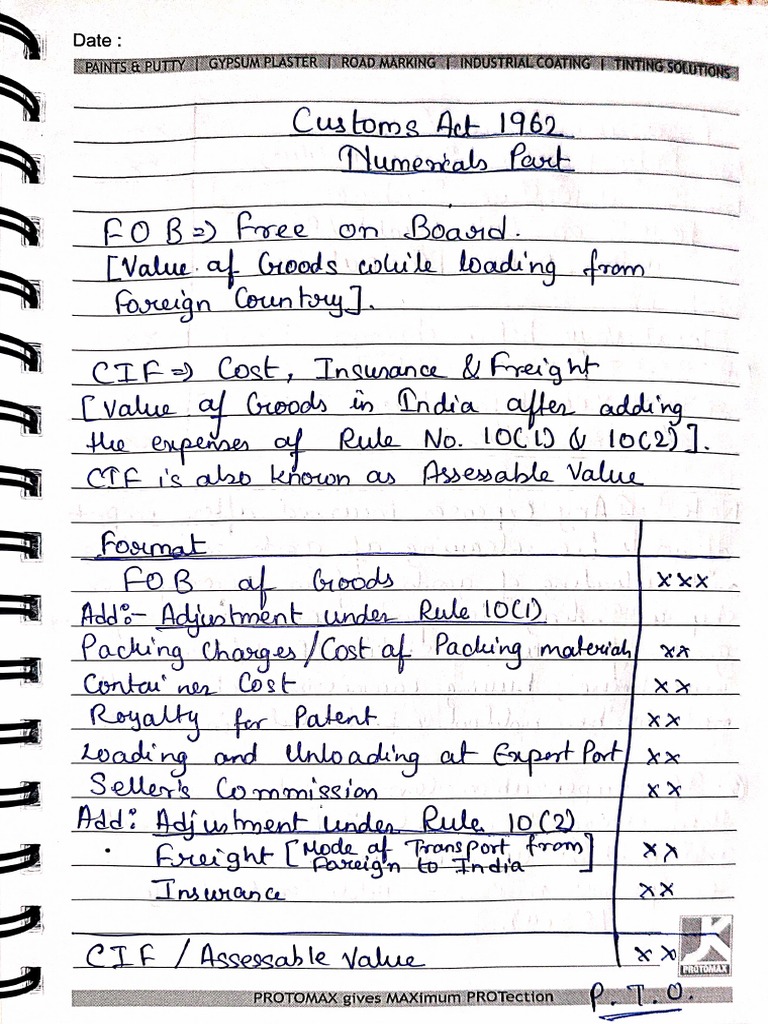 Date :
PAINTS & PUTTY | GYPSUM PLASTER | ROAD MARKING | INDUSTRIAL COATING | TINTING SOLUTIONS
Customs Act 1962
Numericals Part
FOB => Free on Board.
[Value of Goods while loading from
Foreign Country].
CIF => Cost, Insurance & Freight
[Value of Goods in India after adding
the expenses of Rule No. 10(1) & 10(2)].
CIF is also known as Assessable Value
Format
FOB of Goods xxx
Add:- Adjustment under Rule 10(1)
Packing Charges/Cost of Packing materials xx
Container Cost xx
Royalty for Patent xx
Loading and Unloading at Export Port xx
Seller's Commission xx
Add: Adjustment under Rule 10(2)
Freight [Mode of Transport from Foreign to India] xx
Insurance xx
CIF / Assessable Value xx
PROTOMAX
PROTOMAX gives MAXimum PROTection
P.T.O.